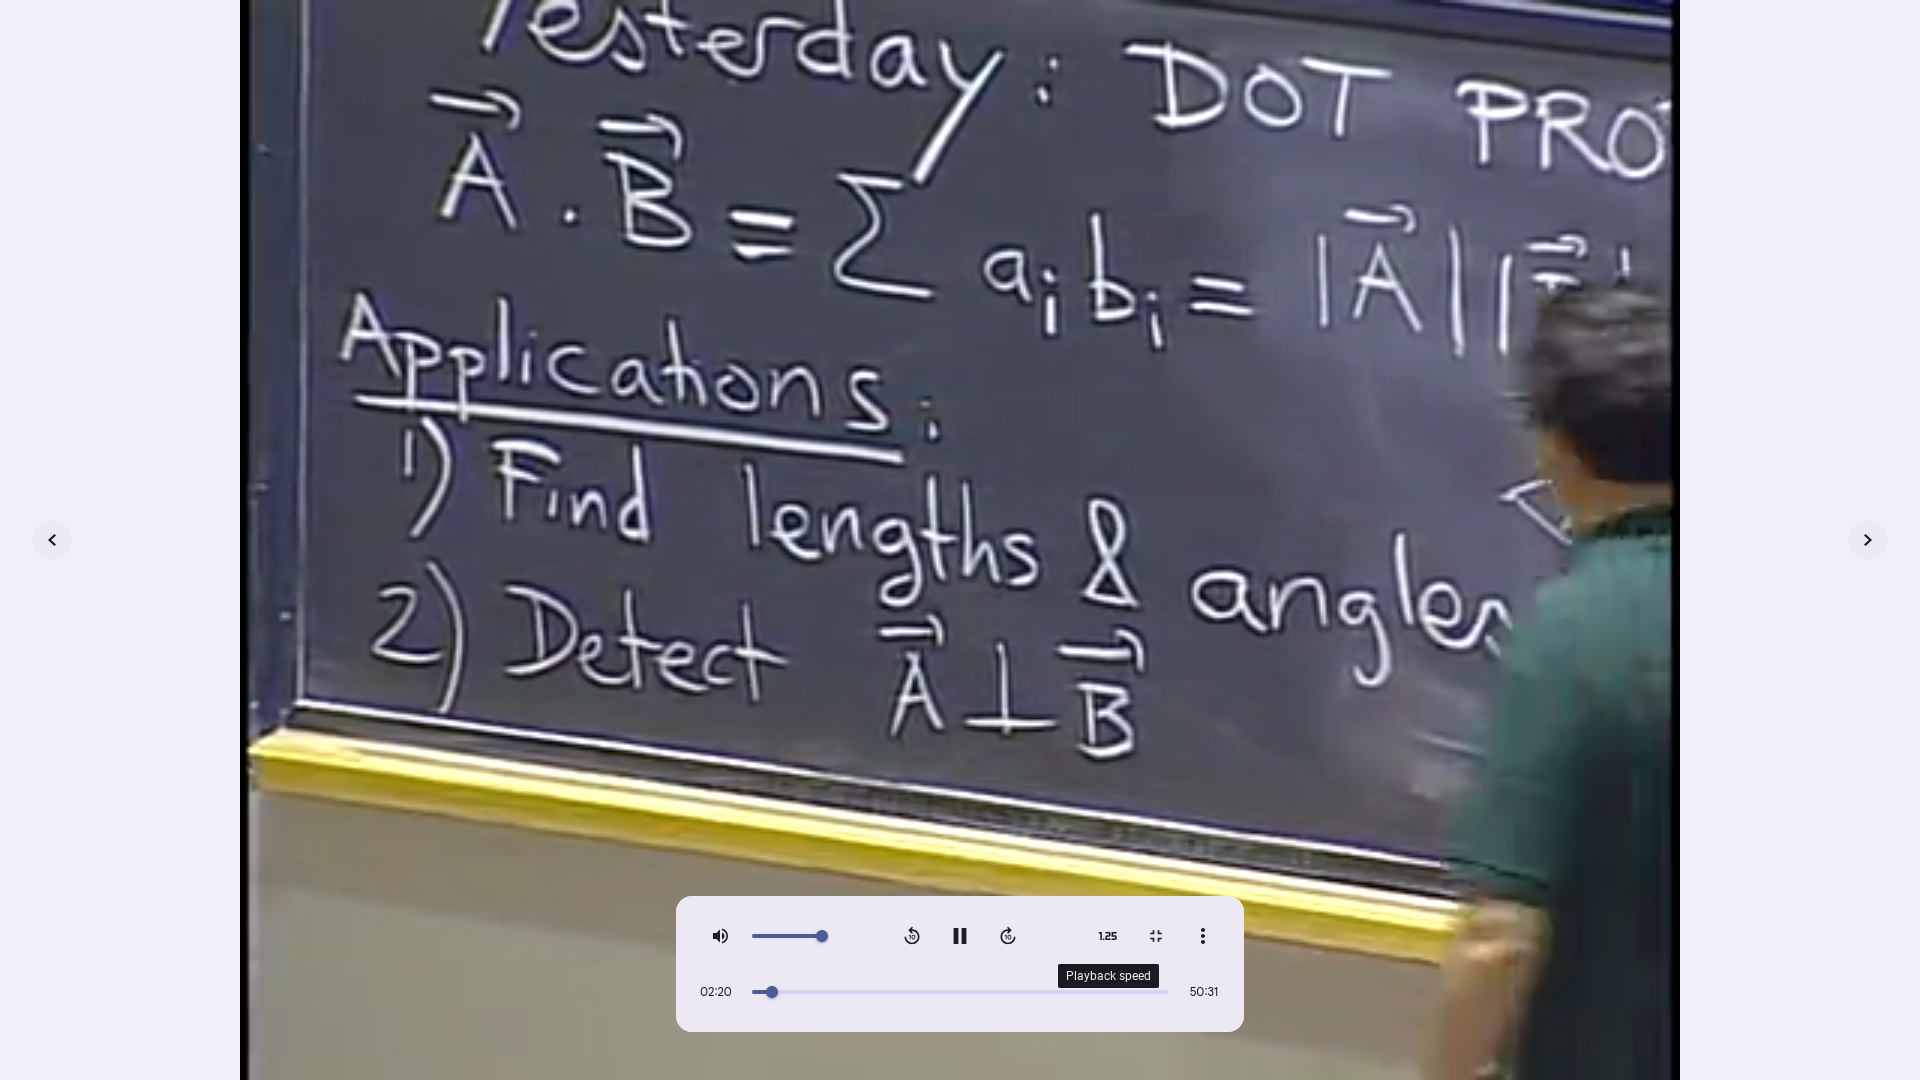 Yesterday: DOT PRO
A · B = Σ aᵢbᵢ = |A| |
Applications:
1) Find lengths & angles
2) Detect A ⊥ B
10
10
1.25
Playback speed
02:20
50:31